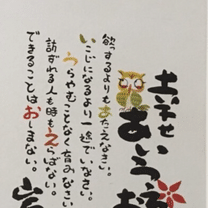 幸せ
あいう
欲するよりもあたえなさい。
いこじになるより一途でいなさい。
うらやむことなく育みなさい。
訪ずれる人も時もえらばない。
できることはおしまない。